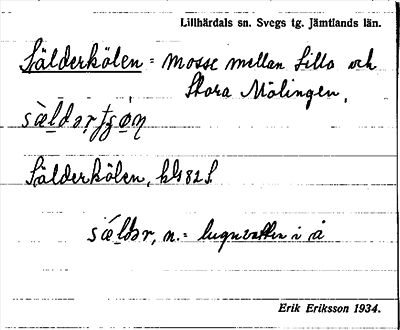 Lillhärdals sn. Svegs tg. Jämtlands län.
Sälderkölen = mosse mellan Lilla och
Stora Mölingen.
Sälderkölen, kbl 82 S.
n. = lugnvatten i å
Erik Eriksson 1934.